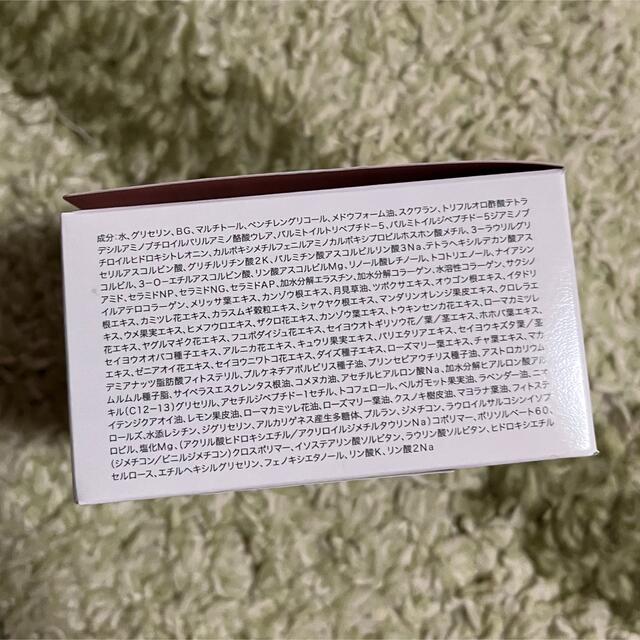 成分:水、グリセリン、BG、マルチトール、ペンチレングリコール、メドウフォーム油、スクワラン、トリフルオロ酢酸テトラ
デシルアミノブチロイルバリルアミノ酪酸ウレア、パルミトイルトリペプチド-5、パルミトイルジペプチド-5ジアミノブ
チロイルヒドロキシトレオニン、カルボキシメチルフェニルアミノカルボキシプロピルホスホン酸メチル、3-ラウリルグリ
セリルアスコルビン酸、グリチルリチン酸2K、パルミチン酸アスコルビルリン酸3Na、テトラヘキシルデカン酸アス
コルビル、3-O-エチルアスコルビン酸、リン酸アスコルビルMg、リノール酸レチノール、トコトリエノール、ナイアシン
アミド、セラミドNP、セラミドNG、セラミドAP、加水分解エラスチン、加水分解コラーゲン、水溶性コラーゲン、サクシノ
イルアテロコラーゲン、メリッサ葉エキス、カンゾウ根エキス、月見草油、ツボクサエキス、オウゴン根エキス、イタドリ
根エキス、カミツレ花エキス、カラスムギ穀粒エキス、シャクヤク根エキス、マンダリンオレンジ果皮エキス、クロレラエ
キス、ウメ果実エキス、ヒメフウロエキス、ザクロ花エキス、カンゾウ葉エキス、トウキンセンカ花エキス、ローマカミツレ
花エキス、ヤグルマギク花エキス、フユボダイジュ花エキス、セイヨウオトギリソウ花/葉/茎エキス、ホホバ葉エキス、
セイヨウオオバコ種子エキス、アルニカ花エキス、キュウリ果実エキス、バリエタリアエキス、セイヨウキズタ葉/茎エ
キス、ゼニアオイ花エキス、セイヨウニワトコ花エキス、ダイズ種子エキス、ローズマリー葉エキス、チャ葉エキス、マカ
デミアナッツ脂肪酸フィトステリル、プルケネチアボルビリス種子油、プリンセピアウチリス種子油、アストロカリウム
ムルムル種子脂、サイペラスエスクレンタス根油、コメヌカ油、アセチルヒアルロン酸Na、加水分解ヒアルロン酸アル
キル(C12-13)グリセリル、アセチルジペプチド-1セチル、トコフェロール、ベルガモット果実油、ラベンダー油、ニオ
イテンジクアオイ油、レモン果皮油、ローマカミツレ花油、ローズマリー葉油、クスノキ樹皮油、マヨラナ葉油、フィトステ
ロールズ、水添レシチン、ジグリセリン、アルカリゲネス産生多糖体、プルラン、ジメチコン、ラウロイルサルコシンイソプ
ロピル、塩化Mg、(アクリル酸ヒドロキシエチル/アクリロイルジメチルタウリンNa)コポリマー、ポリソルベート60、
(ジメチコン/ビニルジメチコン)クロスポリマー、イソステアリン酸ソルビタン、ラウリン酸ソルビタン、ヒドロキシエチル
セルロース、エチルヘキシルグリセリン、フェノキシエタノール、リン酸K、リン酸2Na